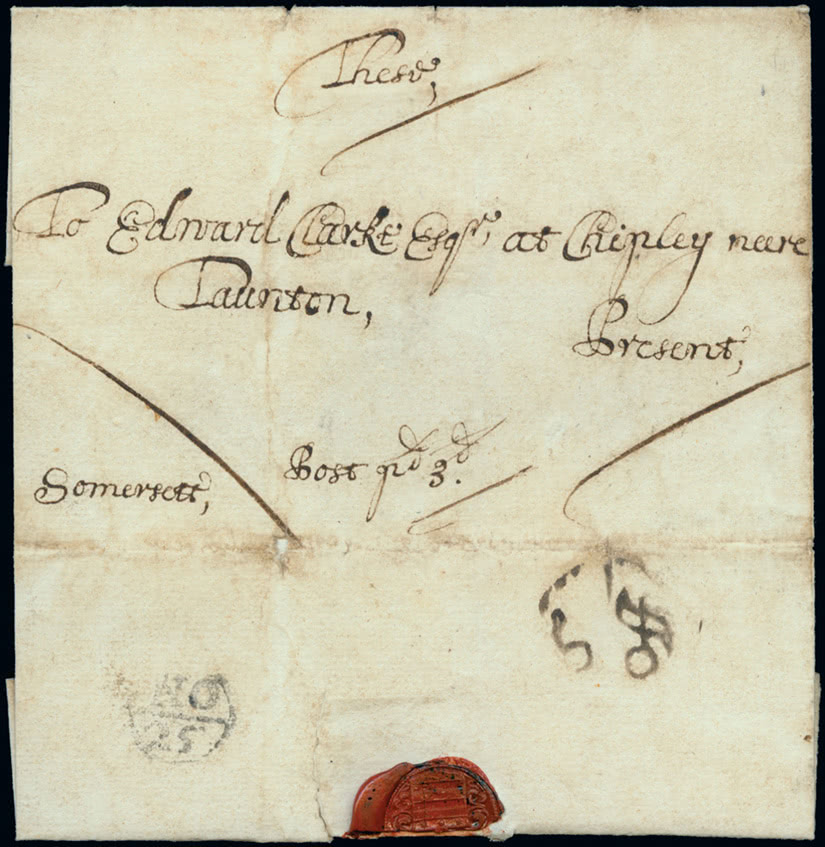 These,
To Edward Clarke Esqr, at Chipley neere
Taunton,
Present,
Post pd 3d.
Somersett,